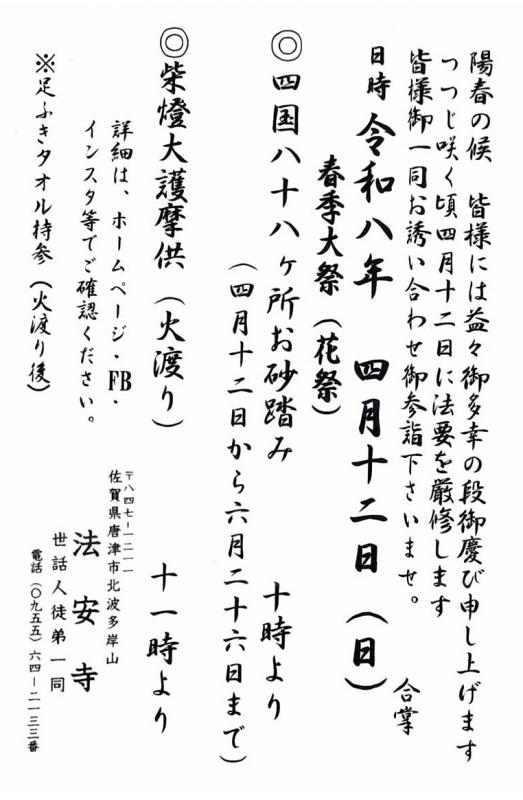 陽春の候　皆様には益々御多幸の段御慶び申し上げます
つつじ咲く頃四月十二日に法要を厳修します
皆様御一同お誘い合わせ御参詣下さいませ。
合掌
日時 令和八年　四月十二日（日）
春季大祭（花祭）
◎四国八十八ヶ所お砂踏み　十時より
（四月十二日から六月二十六日まで）
◎柴燈大護摩供（火渡り）　十一時より
詳細は、ホームページ・FB・
インスタ等でご確認ください。
※足ふきタオル持参（火渡り後）
〒八四七－一二一一
佐賀県唐津市北波多岸山
法安寺
世話人徒弟一同
電話（〇九五五）六四－二一三三番